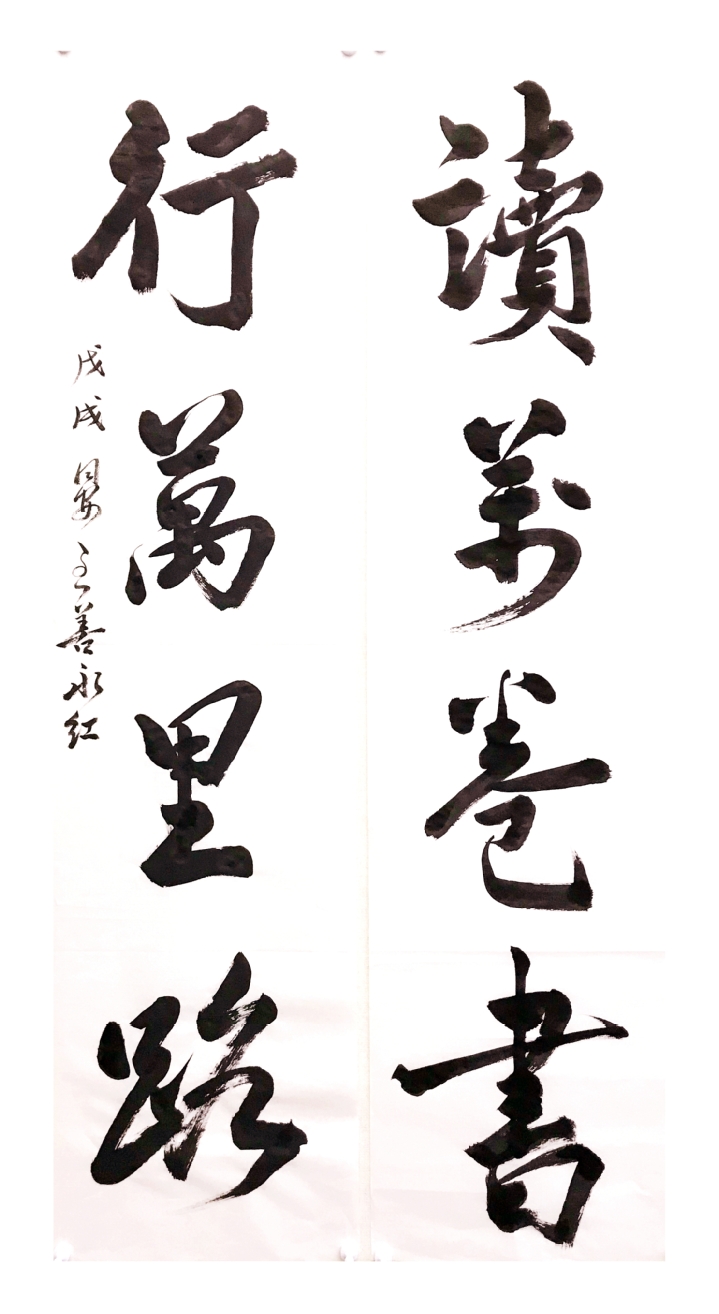 讀萬卷書
行萬里路
戊戌夏 王善永红